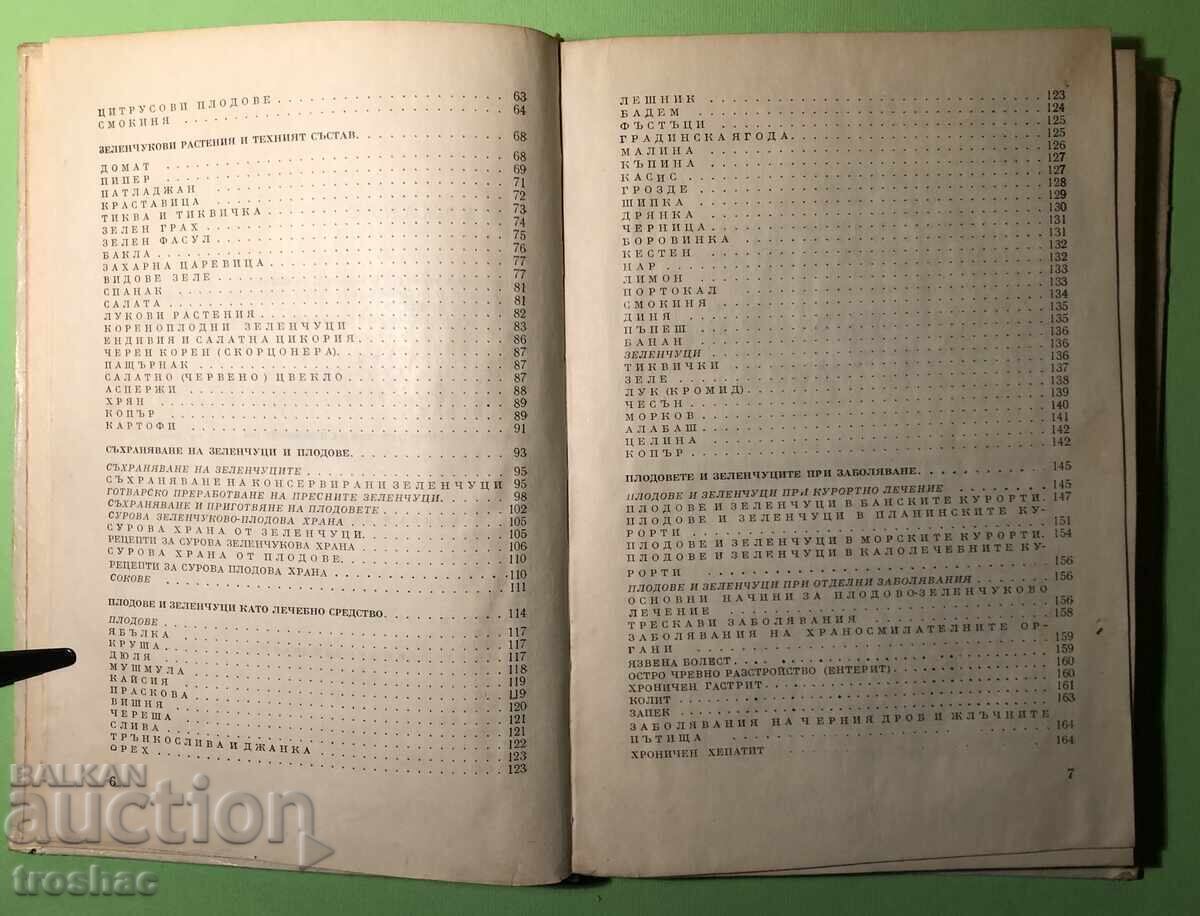 ЦИТРУСОВИ ПЛОДОВЕ . . . 63
СМОКИНЯ . . . 64
ЗЕЛЕНЧУКОВИ РАСТЕНИЯ И ТЕХНИЯТ СЪСТАВ. . . . 68
ДОМАТ . . . 68
ПИПЕР . . . 69
ПАТЛАДЖАН . . . 71
КРАСТАВИЦА . . . 72
ТИКВА И ТИКВИЧКА . . . 73
ЗЕЛЕН ГРАХ . . . 74
ЗЕЛЕН ФАСУЛ . . . 75
БАКЛА . . . 76
ЗАХАРНА ЦАРЕВИЦА . . . 77
ВИДОВЕ ЗЕЛЕ . . . 77
СПАНАК . . . 81
САЛАТА . . . 81
ЛУКОВИ РАСТЕНИЯ . . . 82
КОРЕНОПЛОДНИ ЗЕЛЕНЧУЦИ . . . 83
ЕНДИВИЯ И САЛАТНА ЦИКОРИЯ . . . 86
ЧЕРЕН КОРЕН (СКОРЦОНЕРА) . . . 87
ПАЩЪРНАК . . . 87
САЛАТНО (ЧЕРВЕНО) ЦВЕКЛО . . . 87
АСПЕРЖИ . . . 88
ХРЯН . . . 89
КОПЪР . . . 89
КАРТОФИ . . . 91
СЪХРАНЯВАНЕ НА ЗЕЛЕНЧУЦИ И ПЛОДОВЕ. . . . 93
СЪХРАНЯВАНЕ НА ЗЕЛЕНЧУЦИТЕ . . . 95
СЪХРАНЯВАНЕ НА КОНСЕРВИРАНИ ЗЕЛЕНЧУЦИ 95
ГОТВАРСКО ПРЕРАБОТВАНЕ НА ПРЕСНИТЕ ЗЕЛЕНЧУЦИ. . . . 98
СЪХРАНЯВАНЕ И ПРИГОТВЯНЕ НА ПЛОДОВЕТЕ . . . 102
СУРОВА ЗЕЛЕНЧУКОВО-ПЛОДОВА ХРАНА . . . 105
СУРОВА ХРАНА ОТ ЗЕЛЕНЧУЦИ. . . . 105
РЕЦЕПТИ ЗА СУРОВА ЗЕЛЕНЧУКОВА ХРАНА . . . 106
СУРОВА ХРАНА ОТ ПЛОДОВЕ. . . . 110
РЕЦЕПТИ ЗА СУРОВА ПЛОДОВА ХРАНА . . . 110
СОКОВЕ . . . 111
ПЛОДОВЕ И ЗЕЛЕНЧУЦИ КАТО ЛЕЧЕБНО СРЕДСТВО. . . . 114
ПЛОДОВЕ . . .
ЯБЪЛКА . . . 117
КРУША . . . 117
ДЮЛЯ . . . 117
МУШМУЛА . . . 118
КАЙСИЯ . . . 119
ПРАСКОВА . . . 119
ВИШНЯ . . . 120
ЧЕРЕША . . . 121
СЛИВА . . . 121
ТРЪНКОСЛИВА И ДЖАНКА . . . 122
ОРЕХ . . . 123
123
6
ЛЕШНИК . . . 123
БАДЕМ . . . 124
ФЪСТЪЦИ . . . 125
ГРАДИНСКА ЯГОДА . . . 125
МАЛИНА . . . 126
КЪПИНА . . . 127
КАСИС . . . 127
ГРОЗДЕ . . . 128
ШИПКА . . . 129
ДРЯНКА . . . 130
ЧЕРНИЦА . . . 131
БОРОВИНКА . . . 131
КЕСТЕН . . . 132
НАР . . . 132
ЛИМОН . . . 133
ПОРТОКАЛ . . . 133
СМОКИНЯ . . . 134
ДИНЯ . . . 135
ПЪПЕШ . . . 135
БАНАН . . . 136
ЗЕЛЕНЧУЦИ . . . 136
ТИКВИЧКИ . . . 137
ЗЕЛЕ . . . 138
ЛУК (КРОМИД) . . . 139
ЧЕСЪН . . . 140
МОРКОВ . . . 141
АЛАБАШ . . . 142
ЦЕЛИНА . . . 142
КОПЪР . . .
ПЛОДОВЕТЕ И ЗЕЛЕНЧУЦИТЕ ПРИ ЗАБОЛЯВАНЕ. . . . 145
ПЛОДОВЕ И ЗЕЛЕНЧУЦИ ПРИ КУРОРТНО ЛЕЧЕНИЕ . . . 145
ПЛОДОВЕ И ЗЕЛЕНЧУЦИ В БАНСКИТЕ КУРОРТИ. 147
ПЛОДОВЕ И ЗЕЛЕНЧУЦИ В ПЛАНИНСКИТЕ КУ-
РОРТИ . . . 151
ПЛОДОВЕ И ЗЕЛЕНЧУЦИ В МОРСКИТЕ КУРОРТИ. 154
ПЛОДОВЕ И ЗЕЛЕНЧУЦИ В КАЛОЛЕЧЕБНИТЕ КУ-
РОРТИ . . . 156
ПЛОДОВЕ И ЗЕЛЕНЧУЦИ ПРИ ОТДЕЛНИ ЗАБОЛЯВАНИЯ . . . 156
ОСНОВНИ НАЧИНИ ЗА ПЛОДОВО-ЗЕЛЕНЧУКОВО
ЛЕЧЕНИЕ . . . 156
ТРЕСКАВИ ЗАБОЛЯВАНИЯ . . . 158
ЗАБОЛЯВАНИЯ НА ХРАНОСМИЛАТЕЛНИТЕ ОР-
ГАНИ . . . 159
ЯЗВЕНА БОЛЕСТ . . . 159
ОСТРО ЧРЕВНО РАЗСТРОЙСТВО (ЕНТЕРИТ) . . . 160
ХРОНИЧЕН ГАСТРИТ . . . 160
КОЛИТ . . . 161
ЗАПЕК . . . 163
ЗАБОЛЯВАНИЯ НА ЧЕРНИЯ ДРОБ И ЖЛЪЧНИТЕ
ПЪТИЩА . . . 164
ХРОНИЧЕН ХЕПАТИТ . . . 164
7
BALKAN
auction
troshac